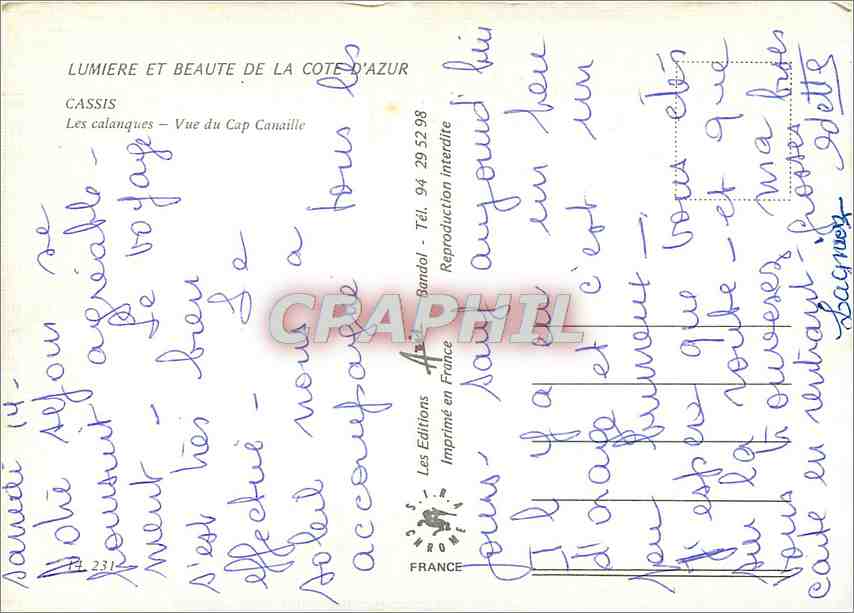 LUMIERE ET BEAUTE DE LA COTE D'AZUR
CASSIS
Les calanques – Vue du Cap Canaille
14 231
Les Editions Bandol - Tél. 94 29 52 98
Imprimé en France Reproduction interdite
S.I.R.A.
CHROME
FRANCE
CPAPHIL
samedi 14 -
Notre séjour se
poursuit agréable-
ment - Le voyage
s'est très bien
effectué - Le
soleil nous a
accompagné tous les
jours - sauf aujourd'hui
Il y a eu un peu
d'orage et c'est un
peu
J'espère que vous êtes
sur la route - et que
vous trouverez ma
carte en rentrant - Grosses bises
Odette